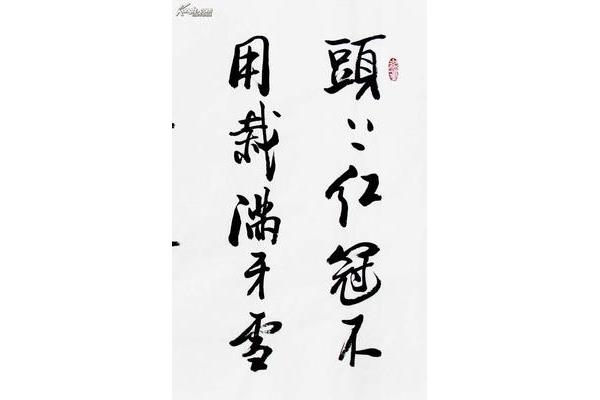 頭上红冠不
用裁满身雪